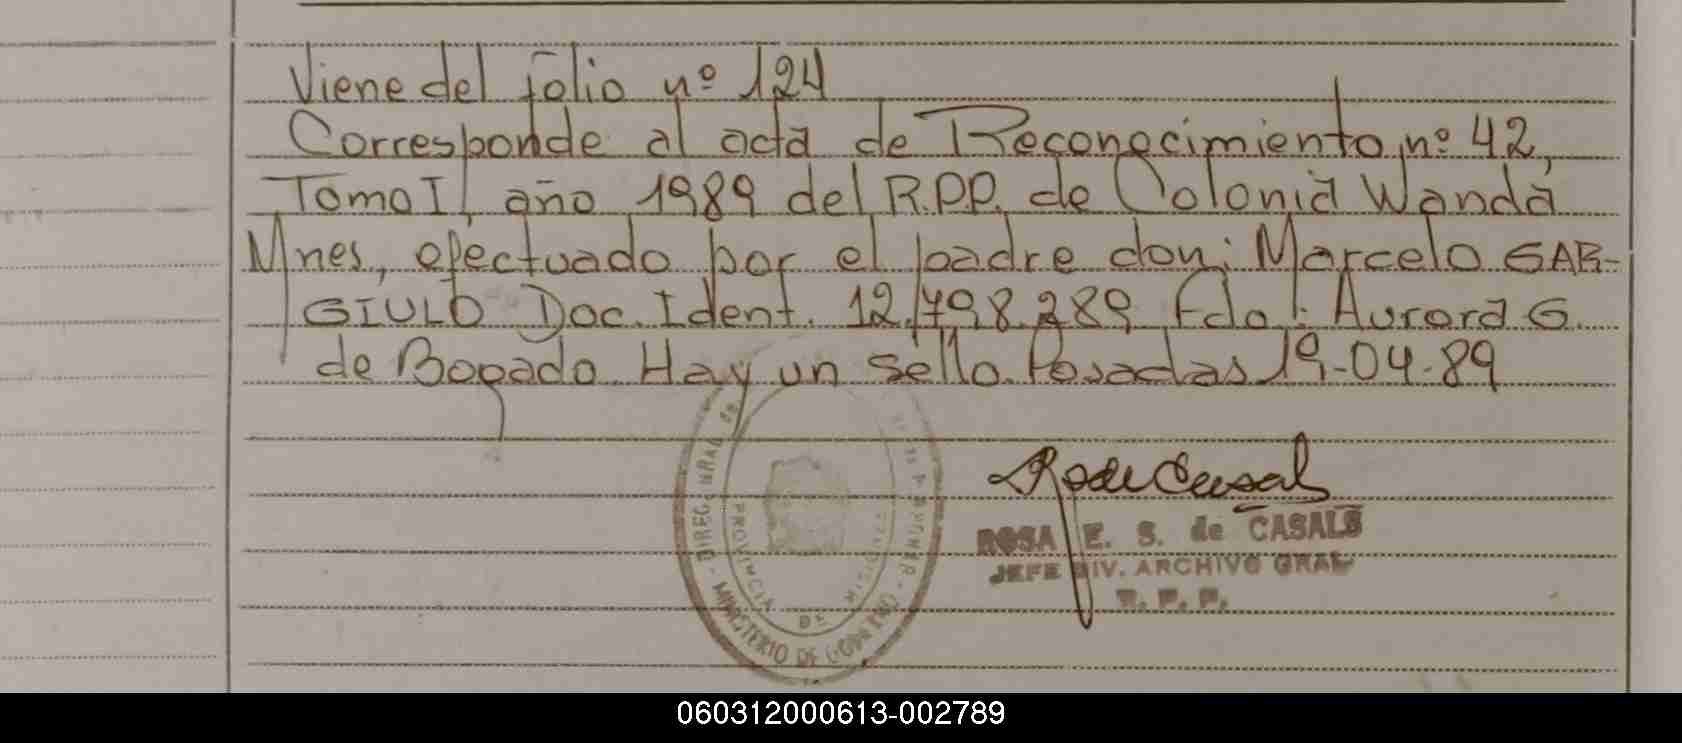 Viene del folio nº 124
Corresponde al acta de Reconocimiento, nº 42,
Tomo I, año 1989 del R.P.P. de Colonia Wanda
Mnes, efectuado por el padre don: Marcelo GAR-
GIULO Doc. Ident. 12.798.289 Fdo: Aurora G.
de Bogado. Hay un sello. Posadas 19-04-89
R de Casals
ROSA E. S. de CASALS
JEFE DIV. ARCHIVO GRAL
R. P. P.
PROVINCIA DE
MINISTERIO DE GOBIERNO
060312000613-002789